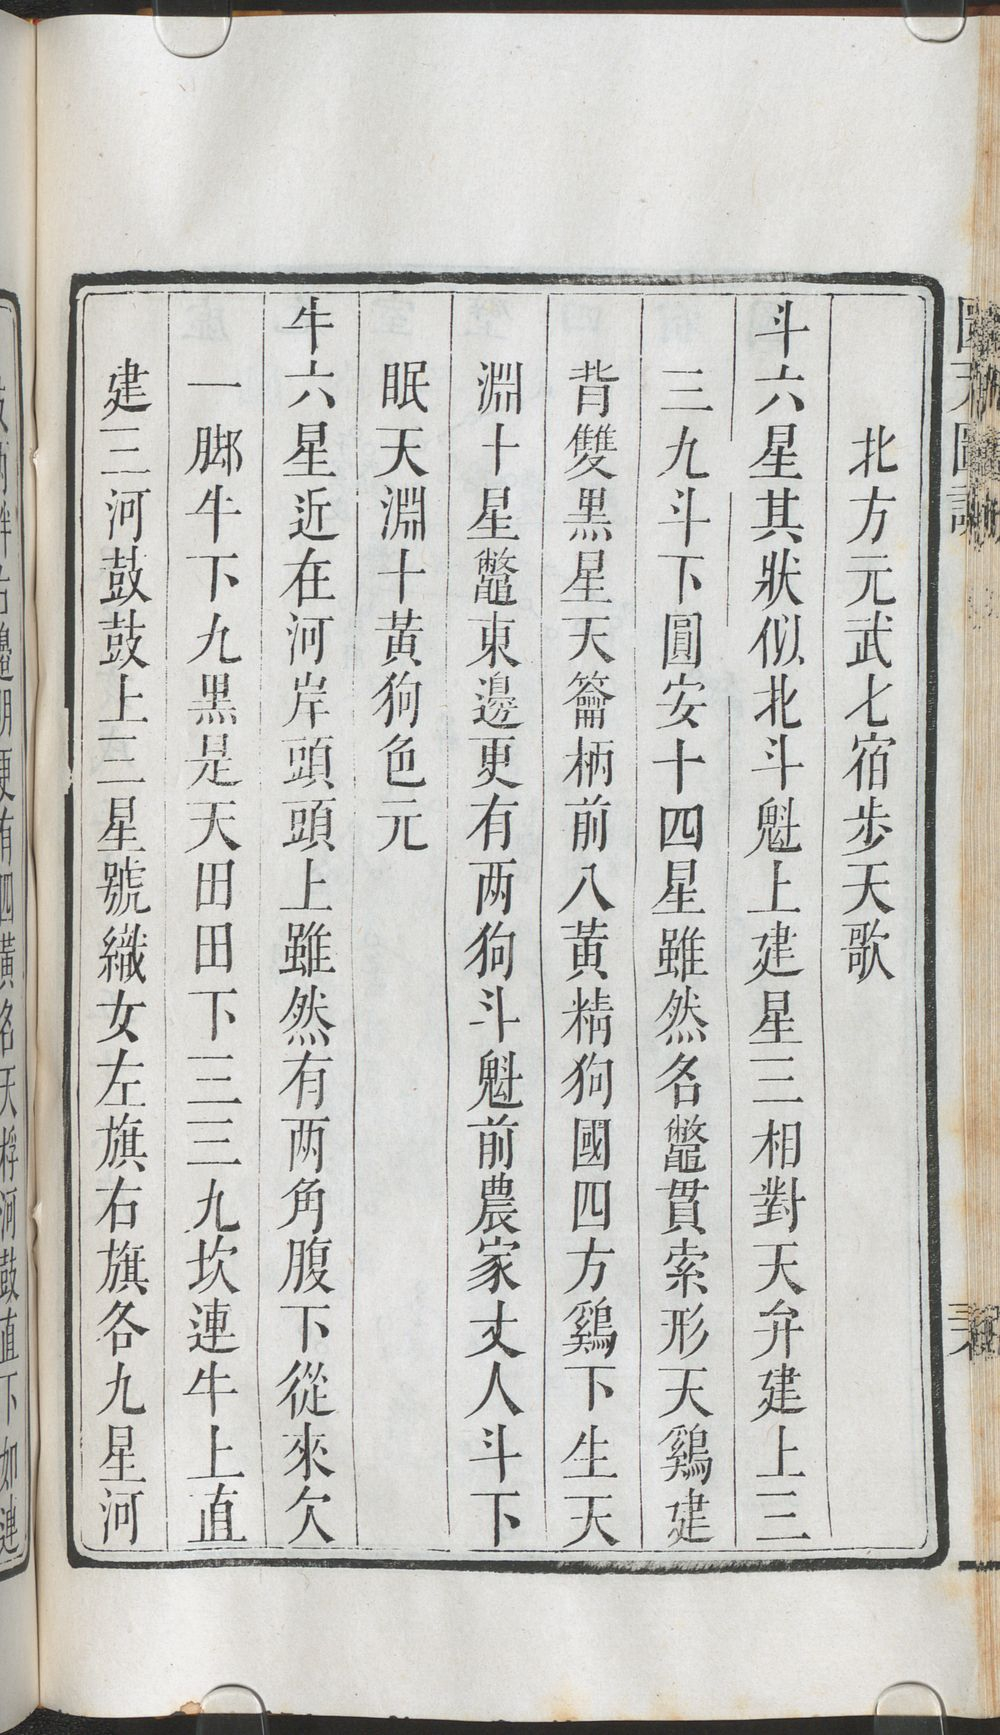 北方元武七宿步天歌
斗六星其狀似北斗魁上建星三相對天弁建上三
三九斗下圓安十四星雖然名鼈貫索形天鷄建
背雙黑星天籥柄前八黃精狗國四方鷄下生天
淵十星鼈東邊更有两狗斗魁前農家丈人斗下
眠天淵十黃狗色元
牛六星近在河岸頭頭上雖然有两角腹下從來欠
一脚牛下九黑是天田田下三三九坎連牛上直
建三河鼓鼓上三星號織女左旗右旗各九星河
邊明更有四黃名天桴河鼓直下如連